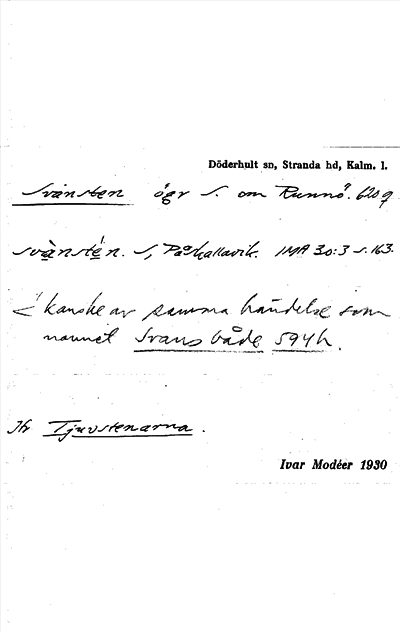 Döderhult sn, Stranda hd, Kalm. l.
Svansten ögr S. om Runnö. 620 g
svànstén. S, Påskallavik. IMA 30:3 s. 163.
kanske av samma händelse som
namnet Svans både 594 h.
Jfr Tjuvstenarna.
Ivar Modéer 1930